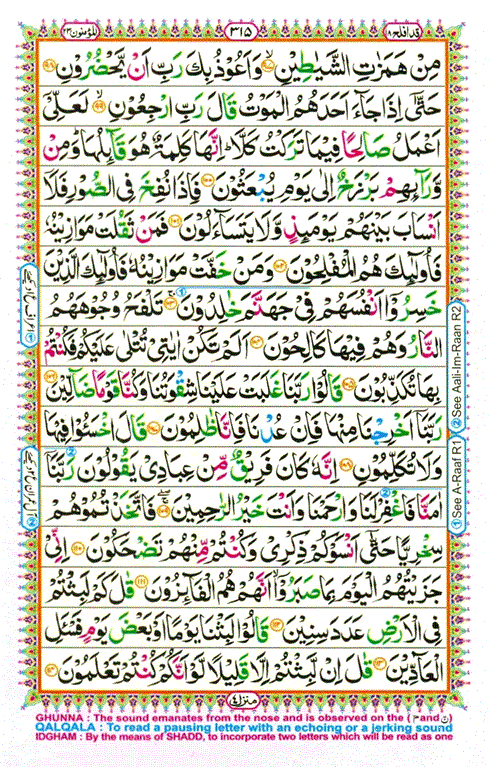 المؤمنون ٢٣ ٣١٥ قد افلح ١٨
مِنْ هَمَزٰتِ الشَّيٰطِيْنِ ۙ﴿۹۷﴾ وَاَعُوْذُ بِكَ رَبِّ اَنْ يَّحْضُرُوْنِ ﴿۹۸﴾
حَتّٰۤى اِذَا جَآءَ اَحَدَهُمُ الْمَوْتُ قَالَ رَبِّ ارْجِعُوْنِ ۙ﴿۹۹﴾ لَعَلِّىْۤ
اَعْمَلُ صَالِحًا فِيْمَا تَرَكْتُ كَلَّا ؕ اِنَّهَا كَلِمَةٌ هُوَ قَآٮِٕلُهَا ؕ وَمِنْ
وَّرَآٮِٕهِمْ بَرْزَخٌ اِلٰى يَوْمِ يُبْعَثُوْنَ ﴿۱۰۰﴾ فَاِذَا نُفِخَ فِى الصُّوْرِ فَلَاۤ
اَنْسَابَ بَيْنَهُمْ يَوْمَٮِٕذٍ وَّلَا يَتَسَآءَلُوْنَ ﴿۱۰۱﴾ فَمَنْ ثَقُلَتْ مَوَازِيْنُهٗ
فَاُولٰٓٮِٕكَ هُمُ الْمُفْلِحُوْنَ ﴿۱۰۲﴾ وَمَنْ خَفَّتْ مَوَازِيْنُهٗ فَاُولٰٓٮِٕكَ الَّذِيْنَ
خَسِرُوْۤا اَنْفُسَهُمْ فِىْ جَهَنَّمَ خٰلِدُوْنَ ۚ﴿۱۰۳﴾ تَلْفَحُ وُجُوْهَهُمُ
النَّارُ وَهُمْ فِيْهَا كٰلِحُوْنَ ﴿۱۰۴﴾ اَلَمْ تَكُنْ اٰيٰتِىْ تُتْلٰى عَلَيْكُمْ فَكُنْتُمْ
بِهَا تُكَذِّبُوْنَ ﴿۱۰۵﴾ قَالُوْا رَبَّنَا غَلَبَتْ عَلَيْنَا شِقْوَتُنَا وَكُنَّا قَوْمًا ضَآلِّيْنَ ﴿۱۰۶﴾
رَبَّنَاۤ اَخْرِجْنَا مِنْهَا فَاِنْ عُدْنَا فَاِنَّا ظٰلِمُوْنَ ﴿۱۰۷﴾ قَالَ اخْسَـُٔوْا فِيْهَا
وَلَا تُكَلِّمُوْنِ ﴿۱۰۸﴾ اِنَّهٗ كَانَ فَرِيْقٌ مِّنْ عِبَادِىْ يَقُوْلُوْنَ رَبَّنَاۤ
اٰمَنَّا فَاغْفِرْ لَنَا وَارْحَمْنَا وَاَنْتَ خَيْرُ الرّٰحِمِيْنَ ۖۚ﴿۱۰۹﴾ فَاتَّخَذْتُمُوْهُمْ
سِخْرِيًّا حَتّٰۤى اَنْسَوْكُمْ ذِكْرِىْ وَكُنْتُمْ مِّنْهُمْ تَضْحَكُوْنَ ﴿۱۱۰﴾ اِنِّىْ
جَزَيْتُهُمُ الْيَوْمَ بِمَا صَبَرُوْۤا ۙ اَنَّهُمْ هُمُ الْفَآٮِٕزُوْنَ ﴿۱۱۱﴾ قٰلَ كَمْ لَبِثْتُمْ
فِى الْاَرْضِ عَدَدَ سِنِيْنَ ﴿۱۱۲﴾ قَالُوْا لَبِثْنَا يَوْمًا اَوْ بَعْضَ يَوْمٍ فَسْـَٔلِ
الْعَآدِّيْنَ ﴿۱۱۳﴾ قٰلَ اِنْ لَّبِثْتُمْ اِلَّا قَلِيْلًا لَّوْ اَنَّكُمْ كُنْتُمْ تَعْلَمُوْنَ ﴿۱۱۴﴾
منزل ٤
① See A-Raaf R1 ② See Aali-Im-Raan R2
GHUNNA : The sound emanates from the nose and is observed on the (م and ن)
QALQALA : To read a pausing letter with an echoing or a jerking sound
IDGHAM : By the means of SHADD, to incorporate two letters which will be read as one